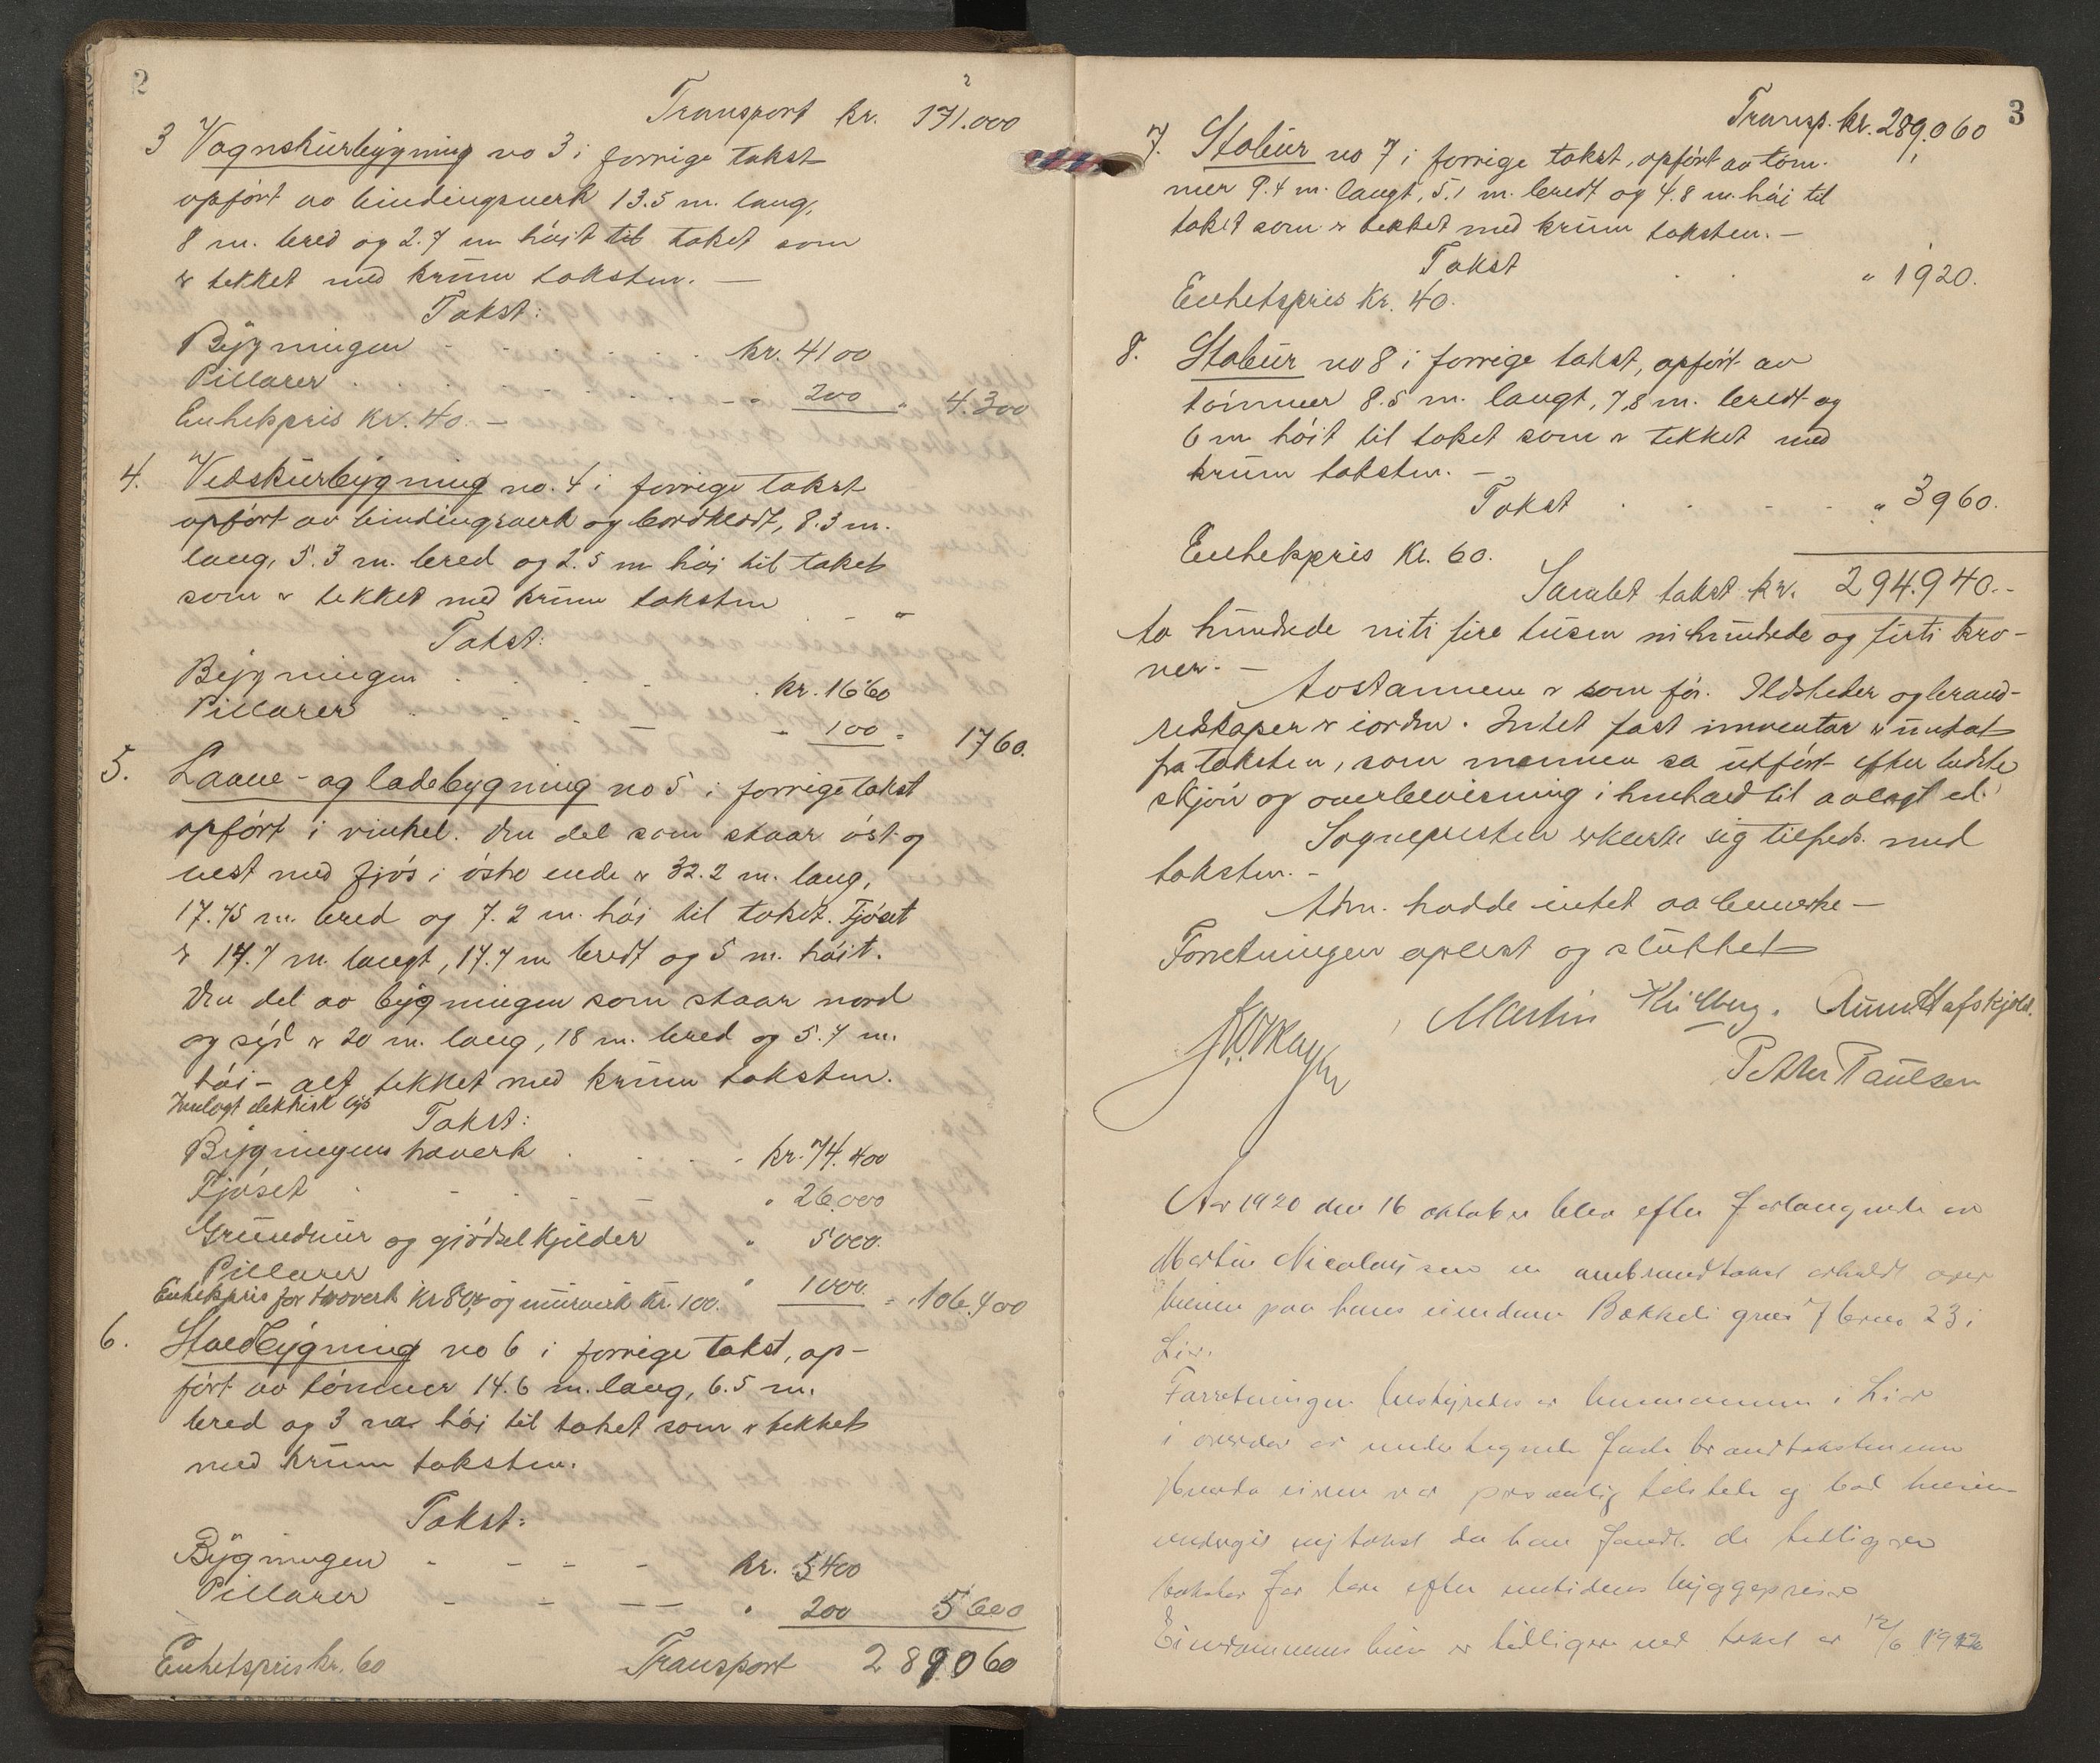 2
2
Transport kr. 171.000
3 Vognskurbygning no 3 i forrige takst
opført av bindingsverk 13.5 m. lang,
8 m. bred og 2.7 m høit til taket som
er tekket med krum taksten. —
Takst:
Bygningen kr. 4100
Pillarer " 200 " 4.300
Enhetspris kr. 40. —
4. Vedskurbygning no. 4 i forrige takst
opført av bindingsverk og bordklædt, 8.3 m.
lang, 5.3 m. bred og 2.5 m høi til taket
som er tekket med krum taksten
Takst:
Bygningen kr. 1660
Pillarer - 100 = 1760.
5. Laave- og ladebygning no 5 i forrige takst
opført i vinkel. Den del som staar øst og
vest med fjøs i østre ende er 32.2 m. lang,
17.75 m. bred og 7.2 m. høi til taket. Fjøset
er 17.7 m. langt, 17.7 m bredt og 5 m. høit.
Den del av bygningen som staar nord
og syd er 20 m. lang, 18 m. bred og 5.7 m.
høi - alt tekket med krum taksten.
Innlagt elektrisk lys
Takst:
Bygningens træverk kr. 74.400
Fjøset " 26.000
Grundmur og gjødselkjelder " 5000.
Pillarer " 1000. = 106.400
Enhetspris for træverk kr 80, og murverk kr. 100.
6. Staldbygning no 6 i forrige takst, op-
ført av tømmer 14.6 m. lang, 6.5 m.
bred og 3 m høi til taket som er tekket
med krum taksten.
Takst:
Bygningen kr. 5400
Pillarer " 200 5600
Enhetspris kr. 60 Transport 289060
3
Transp. kr. 289.060
7. Stabur no 7 i forrige takst, opført av tøm-
mer 9.4 m. langt, 5.1 m. bredt og 4.8 m. høi til
taket som er tekket med krum taksten. —
Takst " 1920.
Enhetspris kr. 40.
8. Stabur no 8 i forrige takst, opført av
tømmer 8.5 m. langt, 7,8 m. bredt og
6 m høit til taket som er tekket med
krum taksten. —
Takst " 3960.
Enhetspris kr. 60.
Samlet takst kr. 294.940.-
to hundrede niti fire tusen nihundrede og firti kro-
ner. —
Avstannene er som før. Ildsteder og brand-
redskaper er iorden. Intet fast inventar er untat
fra taksten, som mennene sa utført efter bedste
skjøn og overbevisning i henhold til avlagt ed.
Sognepresten erklærte sig tilfreds med
taksten. -
Adm. hadde intet aa bemerke —
Forretningen oplest og sluttet
Martin Kihlberg. Anun. Hafskjold.
Petter Paulsen
Aar 1920 den 16 oktober blev efter forlangende av
Martin Nicolaysen en ombrandtakst avholdt over
husene paa hans eiendom Bakkeli gnr 7 brno 23 i
Lier.
Forretningen bestyredes av lensmannen i Lier
i overvær av undertegnede faste brandtakstmenn
eieren var personlig tilstede og bad husene
undergit ny takst da han fandt de tidligere
takster for lave efter nutidens byggepriser
Eiendommens hus er tidligere ved takst av 12/6 1912